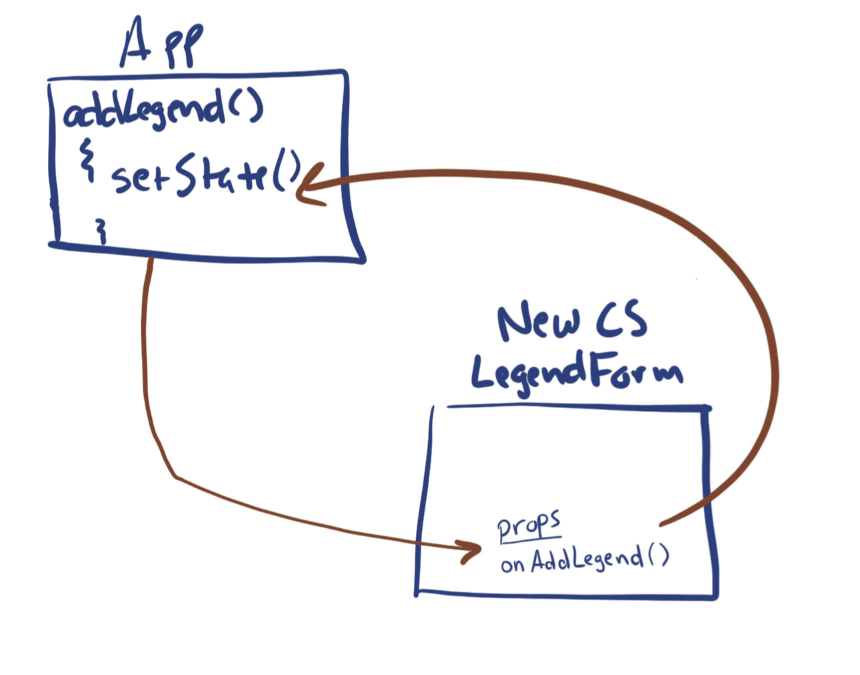 App
addLegend()
{ setState()
}
New CS
LegendForm
props
onAddLegend()